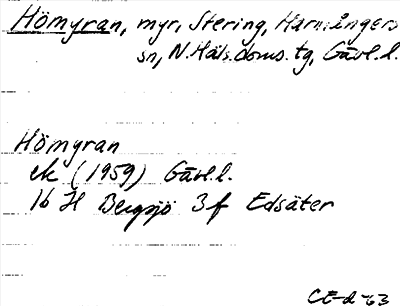 Hömyran, myr, Stering, Harmångers
sn, N. Häls. doms. tg, Gävl. l.
Hömyran
ek (1959) Gävl. l.
16 H Bergsjö 3f Edsäter
CE-d -63